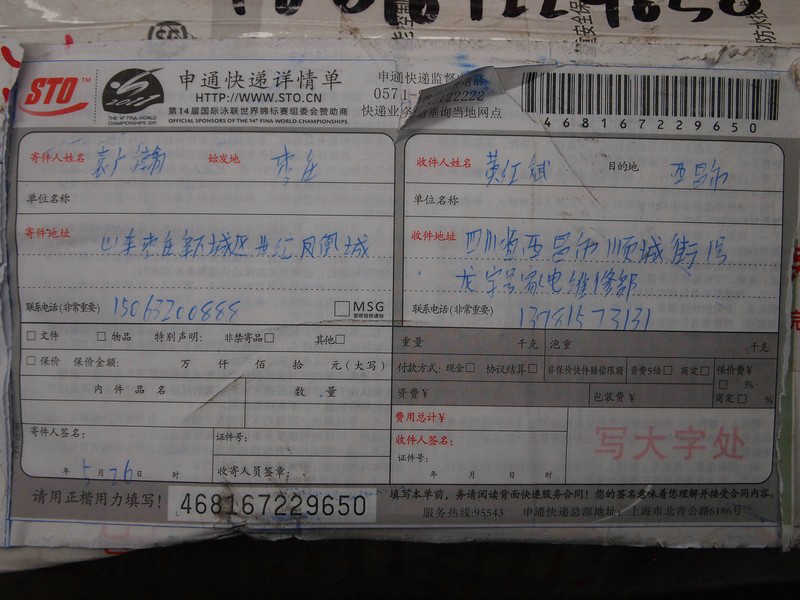 STO™
申通快递详情单
HTTP://WWW.STO.CN
THE 14th FINA WORLD
CHAMPIONSHIPS 2011
第14届国际泳联世界锦标赛组委会赞助商
OFFICIAL SPONSORS OF THE 14th FINA WORLD CHAMPIONSHIPS
申通快递监督
0571-
快递业务 咨询当地网点
468167229650
寄件人姓名 始发地 枣庄
收件人姓名 目的地 西昌市
单位名称
单位名称
寄件地址 山东枣庄新城区 凤凰城
收件地址 四川省西昌市顺城街1号
龙宇号家电维修部
联系电话(非常重要) 15063200888 □MSG
联系电话(非常重要) 13781573131
□文件 □物品 特别声明: 非禁寄品□ 其他□
重量 千克 泡重 千克
□保价 保价金额: 万 仟 佰 拾 元(大写)
付款方式: 现金□ 协议结算□ 非保价快件赔偿限额 资费5倍□ 商定□ 保价费¥
□ %
商定□ %
内件品名 数量
资费¥ 包装费¥
费用总计¥
寄件人签名: 证件号:
收件人签名:
证件号:
写大字处
年 5 月 26 日 时 收寄人员签章:
年 月 日 时
请用正楷用力填写! 468167229650
填写本单前,务请阅读背面快递服务合同!您的签名意味着您理解并接受合同内容。
服务热线:95543 申通快递总部地址:上海市北青公路6186号